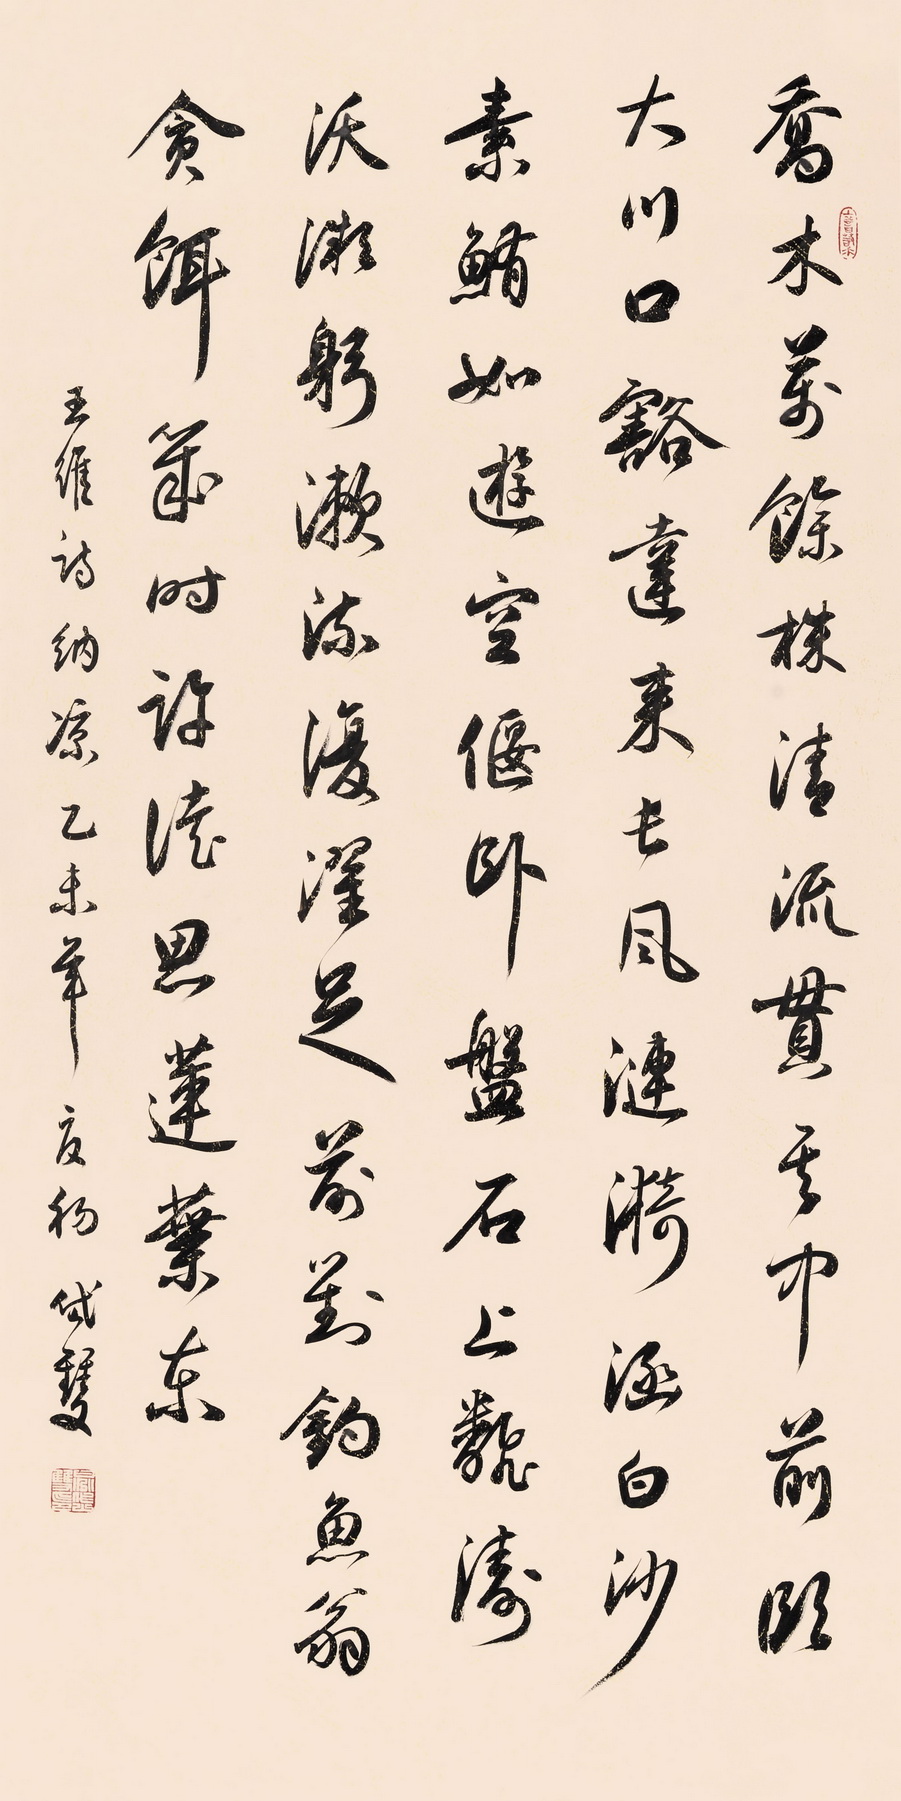 喬木萬餘株清流貫其中前臨
大川口豁達來長風漣漪涵白沙
素鮪如遊空偃臥盤石上翻濤
沃微躬漱流復濯足前對釣魚翁
貪餌幾时許徒思蓮葉东
王維詩納凉乙未年夏初